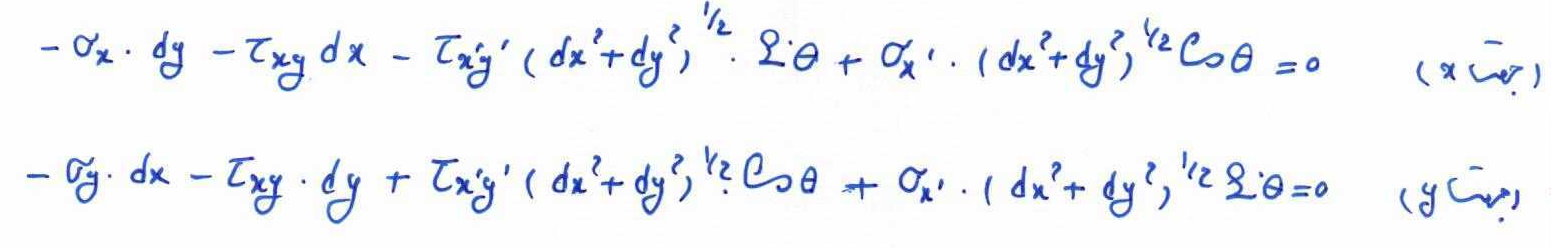 - σx · dy - τxy dx - τx'y' (dx² + dy²)^1/2 · Sinθ + σx' · (dx² + dy²)^1/2 Cosθ = 0 (x جهت)
- σy · dx - τxy · dy + τx'y' (dx² + dy²)^1/2 · Cosθ + σx' · (dx² + dy²)^1/2 Sinθ = 0 (y جهت)